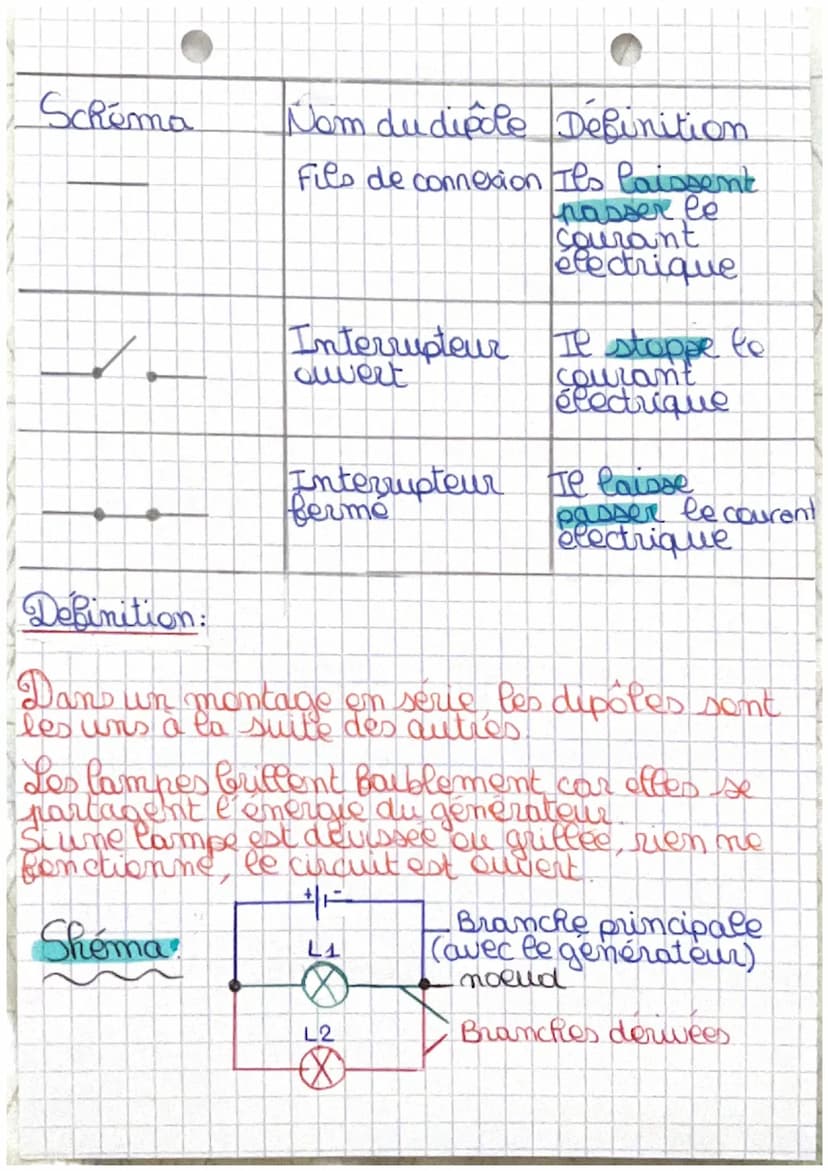 Schéma
Nom du dipôle
Définition
Fils de connexion
Ils laissent
passer le
courant
électrique
Interrupteur
ouvert
Il stoppe le
courant
électrique
Interrupteur
fermé
Il laisse
passer le courent
électrique
Définition:
Dans un montage en série, les dipôles sont
les uns à la suite des autres.
Les lampes brillent faiblement car elles se
partagent l'énergie du générateur.
Si une lampe est dévissée ou grillée, rien ne
fonctionne, le circuit est ouvert.
Shéma:
+ -
L1
L2
Branche principale
(avec le générateur)
noeud
Branches dérivées